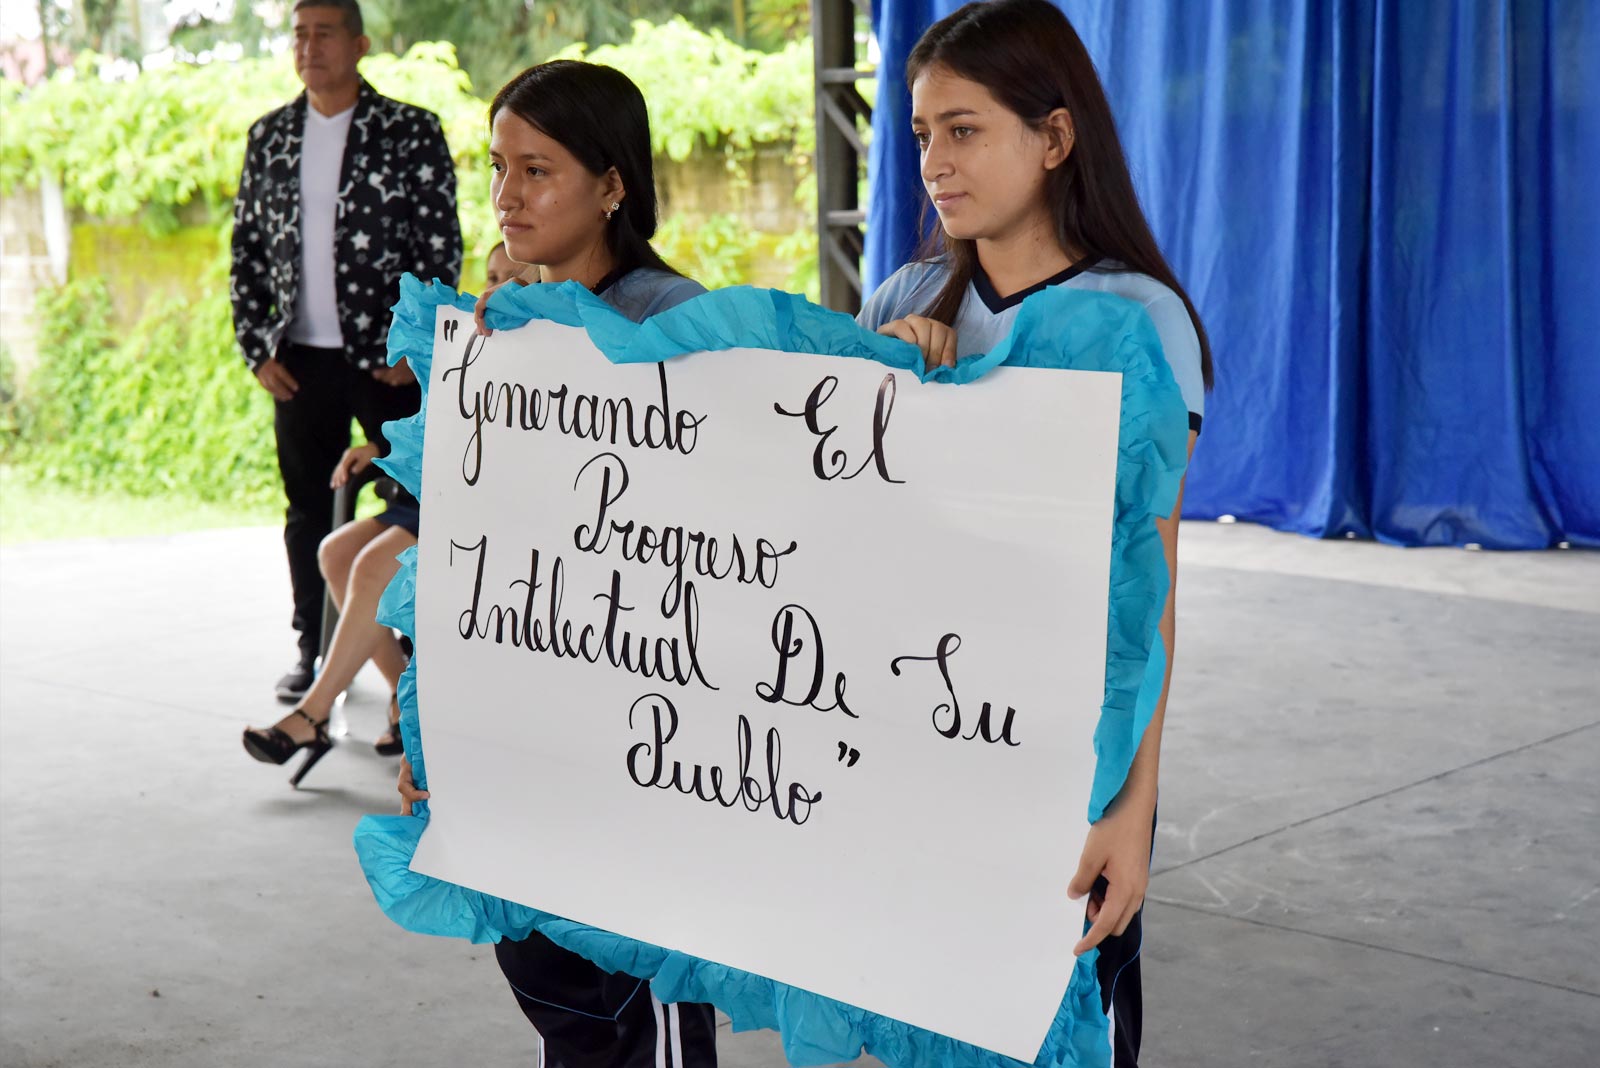 "Generando El
Progreso
Intelectual De Su
Pueblo"